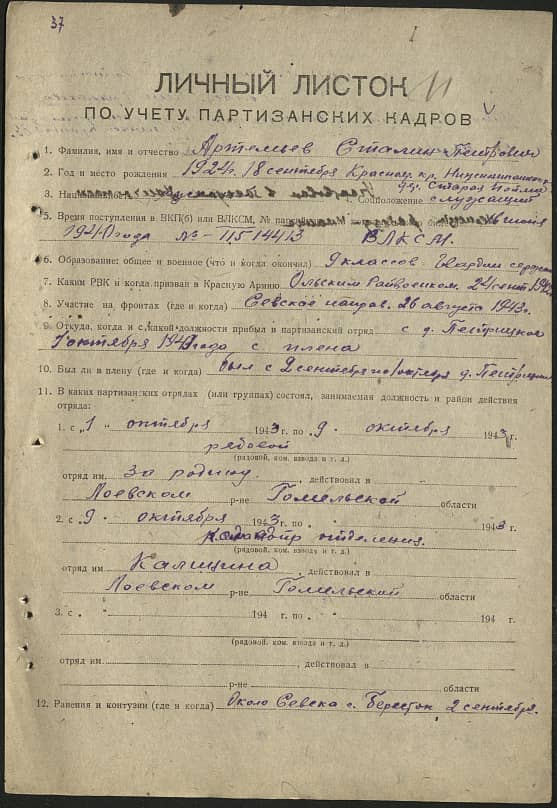 37
I
11
ЛИЧНЫЙ ЛИСТОК
ПО УЧЕТУ ПАРТИЗАНСКИХ КАДРОВ
1. Фамилия, имя и отчество Артемьев Сталин Петрович
2. Год и место рождения 1924г. 18 сентября Краснояр. кр.
дер. Старая Пойма
3. Соцположение служащий
5. Время поступления в ВКП(б) или ВЛКСМ, № июля
1940 года № 11514413 ВЛКСМ.
6. Образование: общее и военное (что и когда окончил) 9 классов. Гвардии
7. Каким РВК и когда призван в Красную Армию Ольским Райвоенком. 24 сент
8. Участие на фронтах (где и когда) Севское направ. 26 августа 1943г.
9. Откуда, когда и с какой должности прибыл в партизанский отряд с д.
октября 1943 года с плена
10. Был ли в плену (где и когда) был с 2 сентября по октября д.
11. В каких партизанских отрядах (или группах) состоял, занимаемая должность и район действия
отряда:
1. с „1" октября 1943 г. по „9. октября 1943 г.
рядовой
(рядовой, ком. взвода и т. д.)
отряд им. За родину , действовал в
Лоевском р-не Гомельской области
2. с „9 " октября 1943 г. по „ 1943 г.
Командир отделения.
(рядовой, ком. взвода и т. д.)
отряд им. Калинина , действовал в
Лоевском р-не Гомельский области
3. с „ " 194 г. по „ 194 г.
(рядовой, ком. взвода и т. д.)
отряд им. , действовал в
р-не области
12. Ранения и контузии (где и когда) Около Севска с. Бересток 2 сентября.